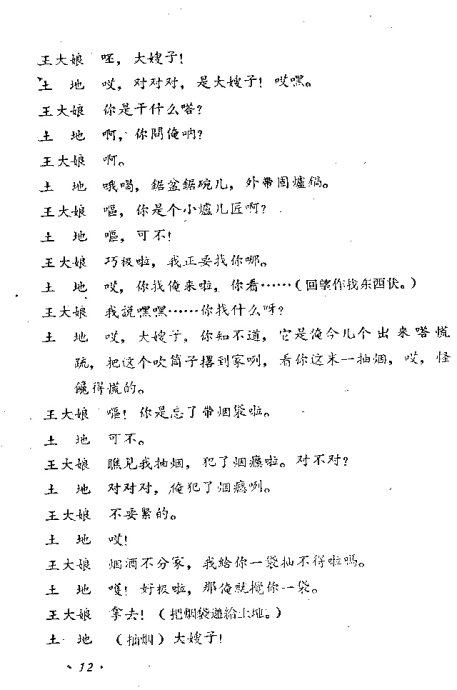 王大娘 呸，大嫂子！
土 地 哎，对对对，是大嫂子！哎嘿。
王大娘 你是干什么嗒？
土 地 啊，你問俺吶？
王大娘 啊。
土 地 哦喝，鋸盆鋸碗儿，外帶囿爐鍋。
王大娘 嘔，你是个小爐儿匠啊？
土 地 嘔，可不！
王大娘 巧极啦，我正要找你哪。
土 地 哎，你找俺来啦，你看……（回身作找东西状。）
王大娘 我說嘿嘿……你找什么呀？
土 地 哎，大嫂子，你知不道，它是俺今儿个出来嗒慌
疏，把这个吹筒子撂到家咧，看你这末一抽烟，哎，怪
饞得慌的。
王大娘 嘔！你是忘了带烟袋啦。
土 地 可不。
王大娘 瞧見我抽烟，犯了烟癮啦。对不对？
土 地 对对对，俺犯了烟癮咧。
王大娘 不要紧的。
土 地 哎！
王大娘 烟酒不分家，我給你一袋抽不得啦嗎。
土 地 嘆！好极啦，那俺就攪你一袋。
王大娘 拿去！（把烟袋递給土地。）
土 地 （抽烟）大嫂子！
· 12 ·